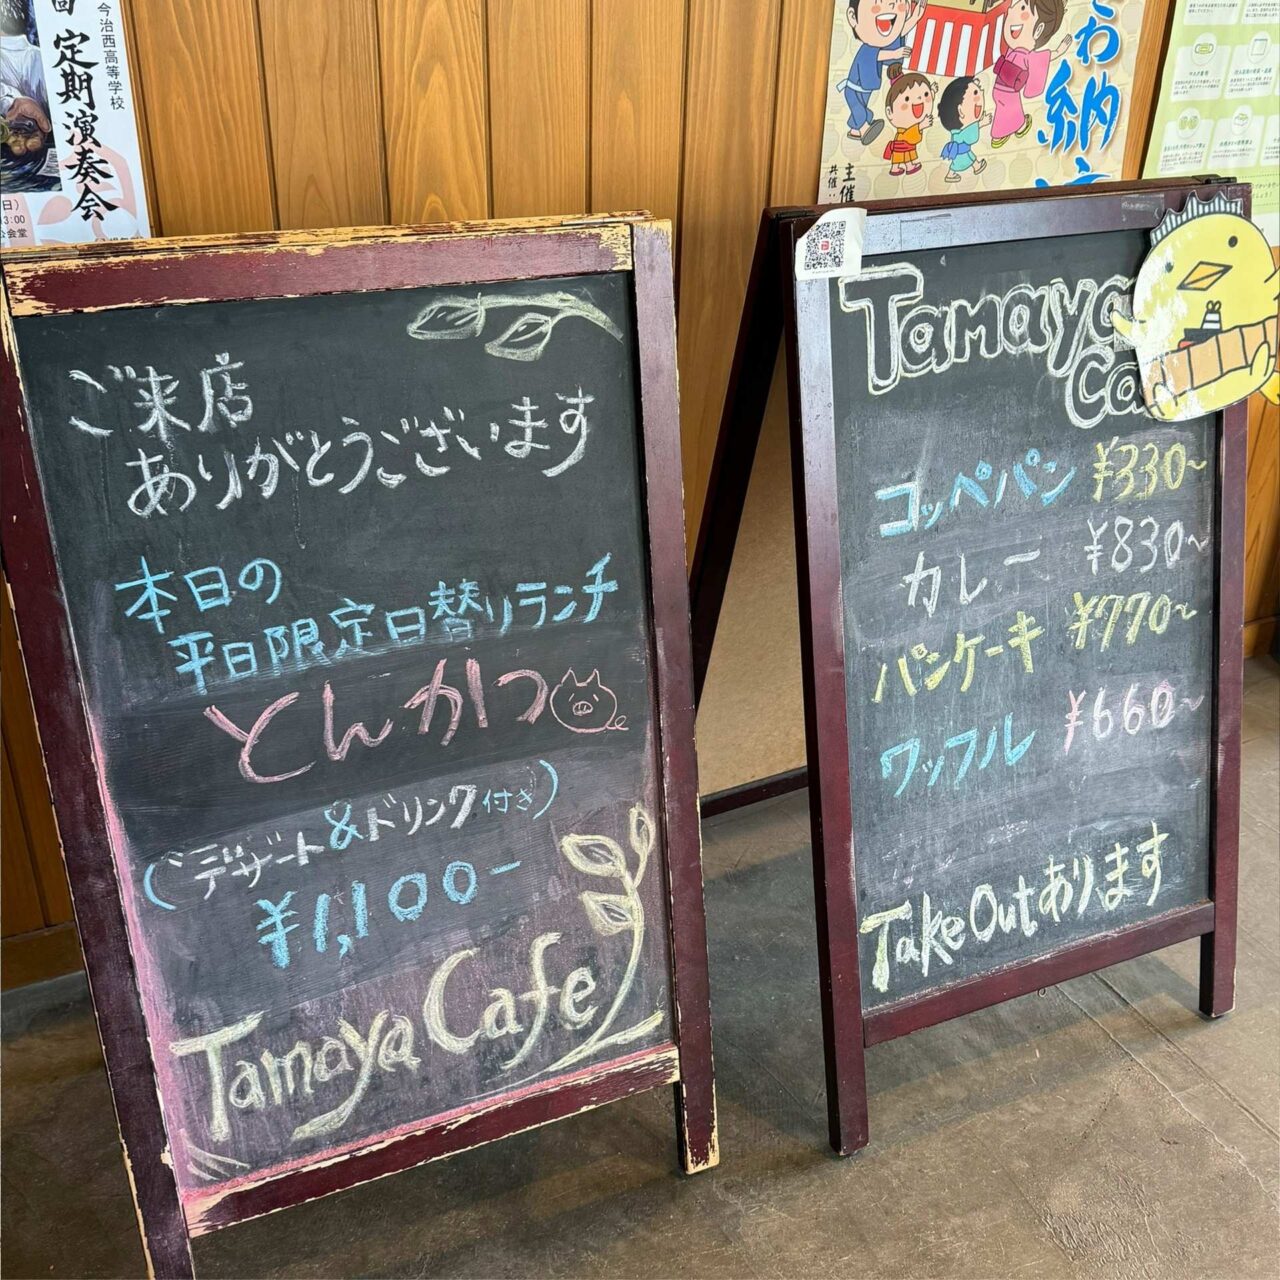 定期演奏会
今治西高等学校
公会堂
わ納
主催
共催
ご来店
ありがとうございます
本日の
平日限定日替りランチ
とんかつ
(デザート&ドリンク付き)
¥1,100-
Tamaya Cafe
Tamaya
コッペパン ¥330~
カレー ¥830~
パンケーキ ¥770~
ワッフル ¥660~
Take Outあります